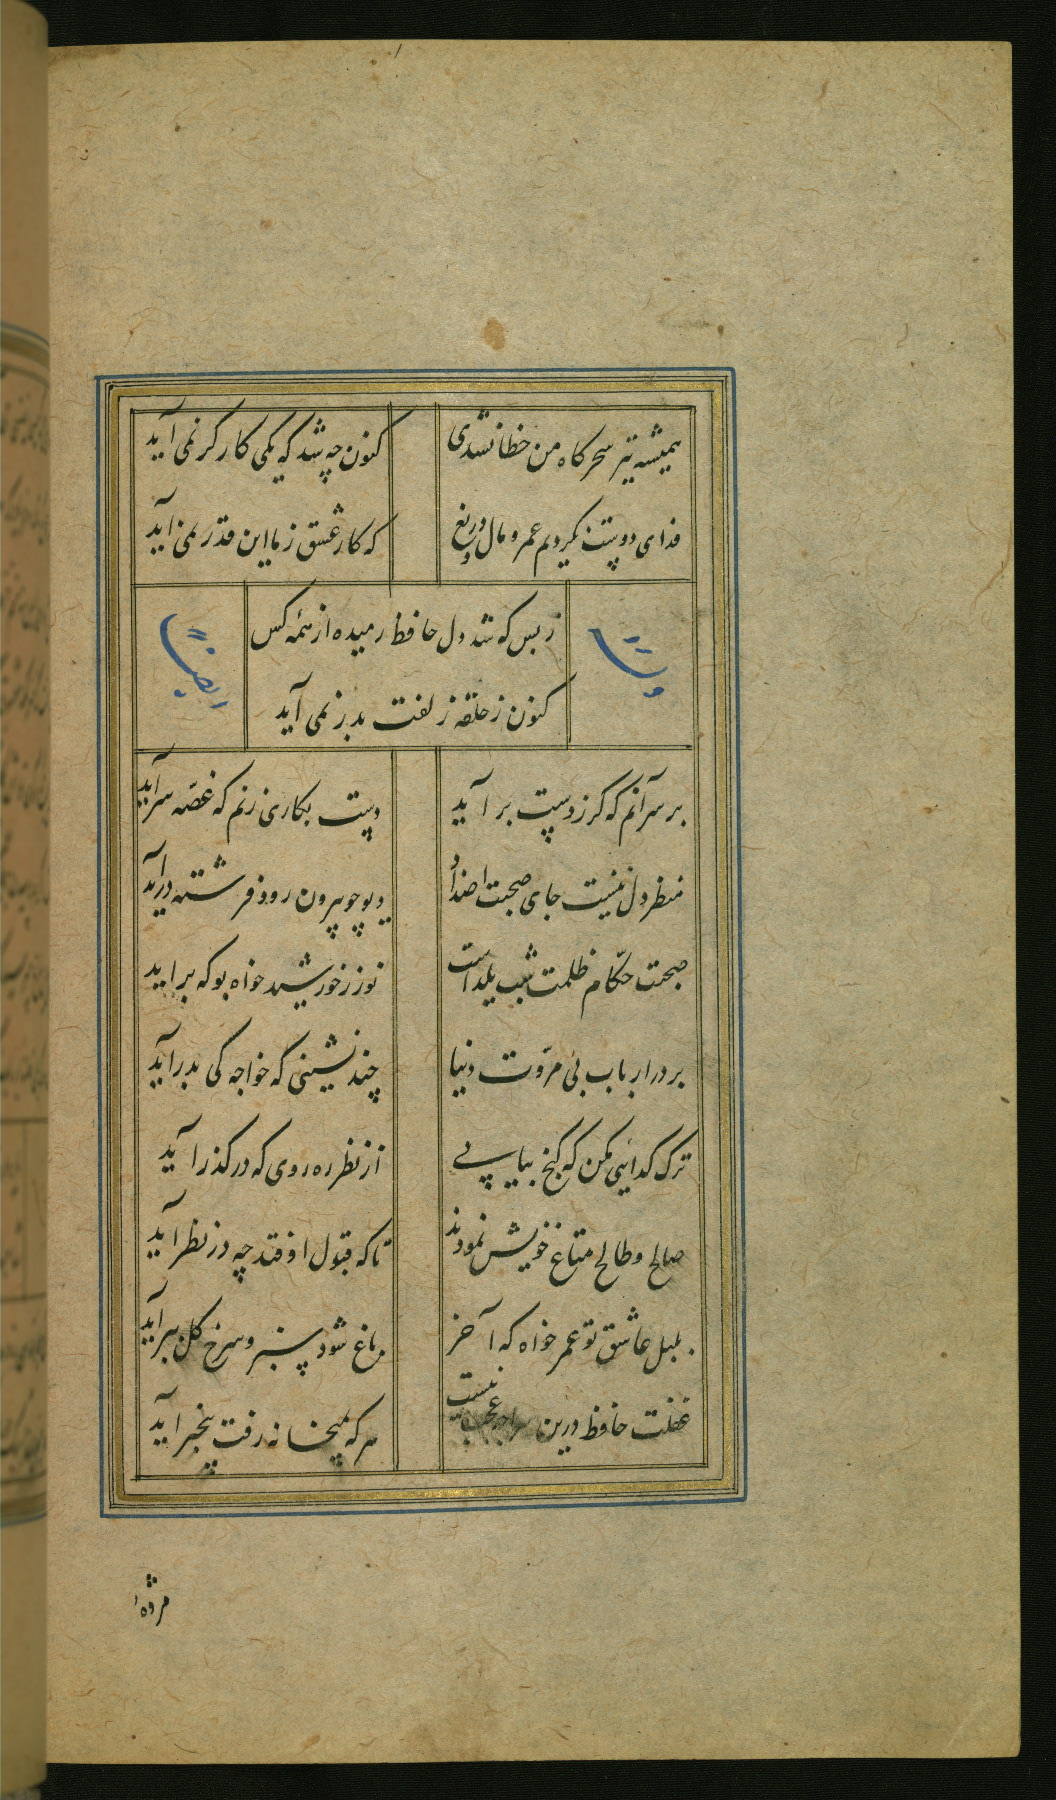 همیشه تیر سحرگاه من خطا نشدی کنون چه شد که یکی کارگر نمی آید
فدای دوست نکردیم عمر و مال دریغ که کار عشق ز ما این قدر نمی آید
ز بس که شد دل حافظ رمیده از همه کس
کنون ز حلقه زلفت بدر نمی آید
وله ایضا
بر سر آنم که کر ز دست بر آید دست بکاری زنم که غصّه سر آید
منظر دل نیست جای صحبت اضداد دیو چو بیرون رود فرشته در آید
صحبت حکّام ظلمت شب یلداست نور ز خورشید خواه بو که بر اید
بر در ارباب بی مرّوت دنیا چند نشینی که خواجه کی بدر آید
ترک کدایی مکن که کنج بیابی از نظر ره روی که در کذر آید
صالح و طالح متاع خویش نمودند تا که قبول افتد چه در نظر آید
بلبل عاشق تو عمر خواه که آخر باغ شود سبز و سرخ کل ببر آید
غفلت حافظ درین سراچه عجب نیست هر که بمیخانه رفت بیخبر آید
مژده